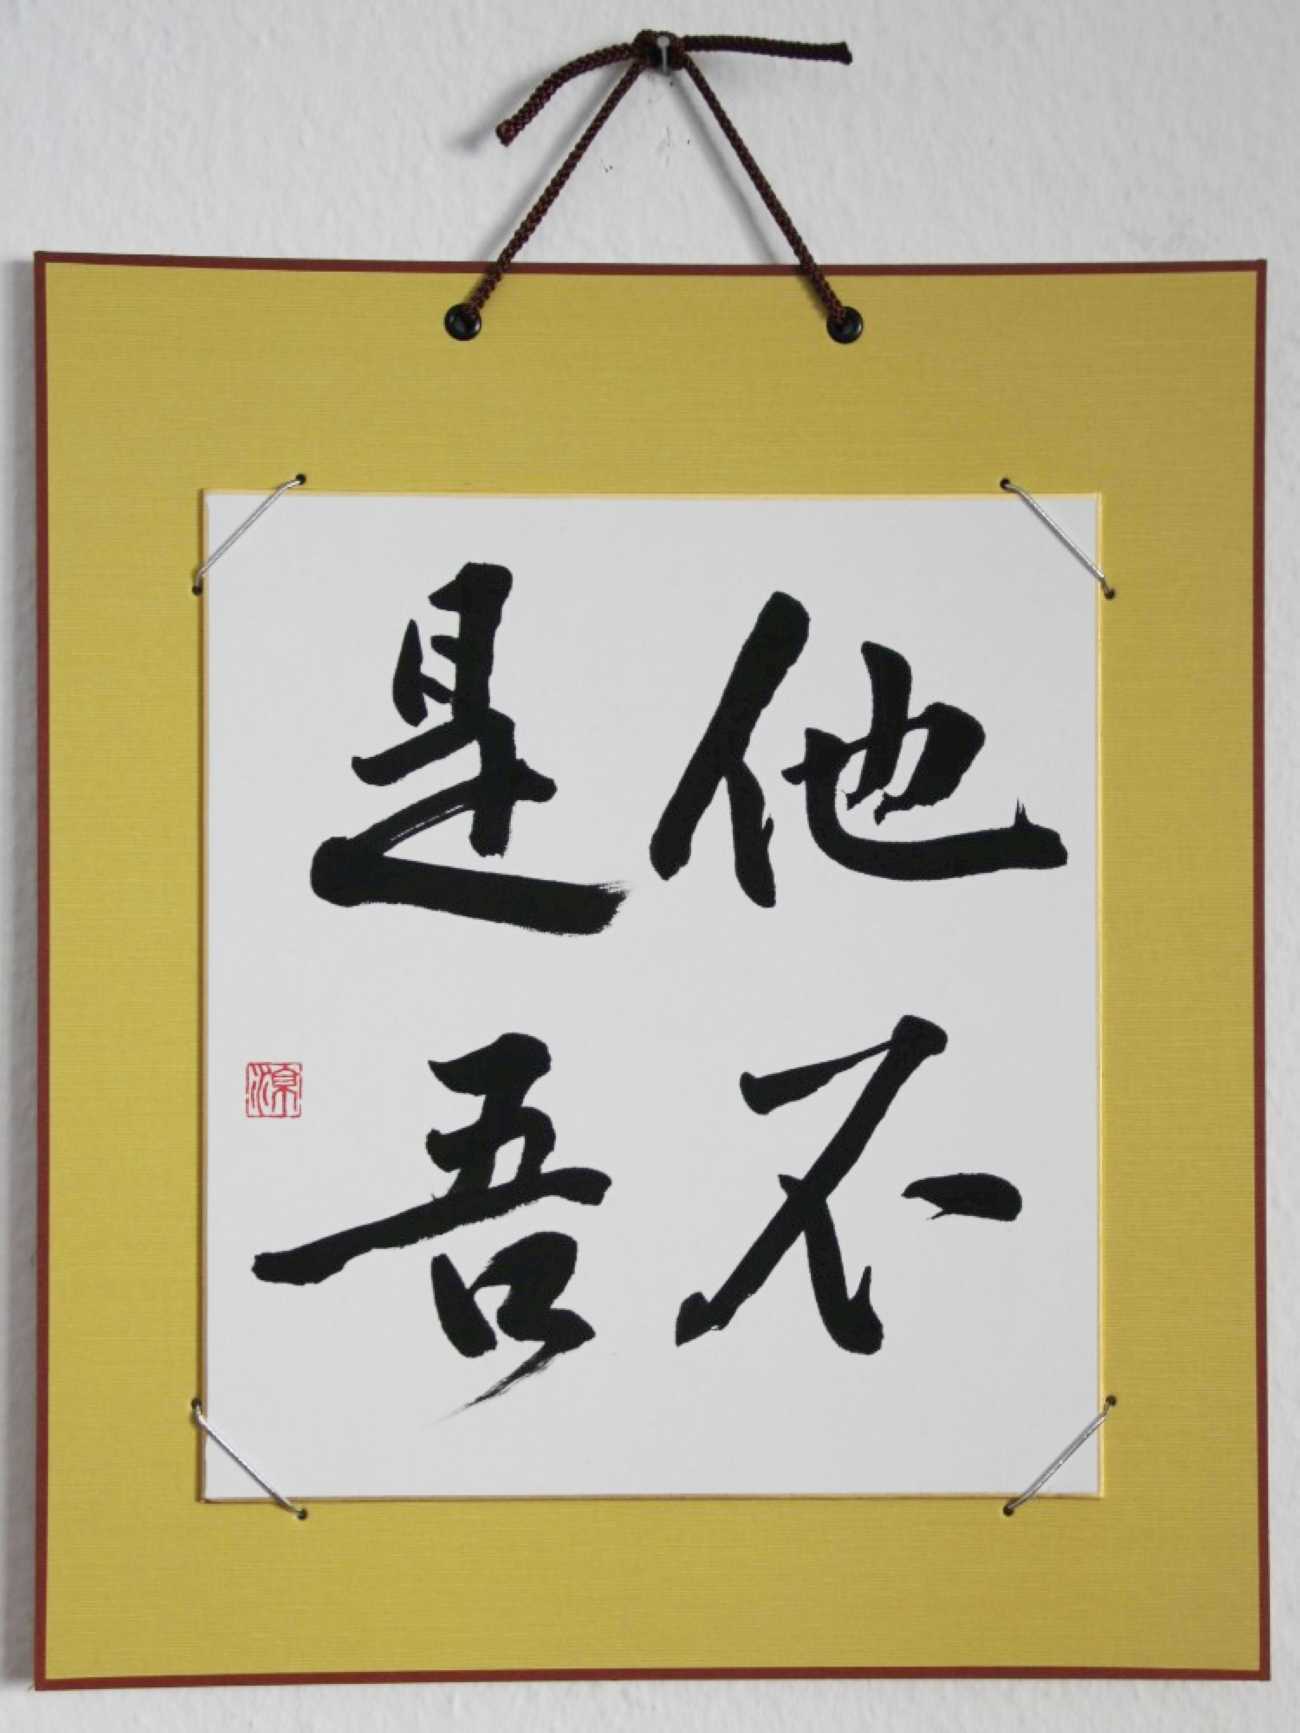 他不
是吾